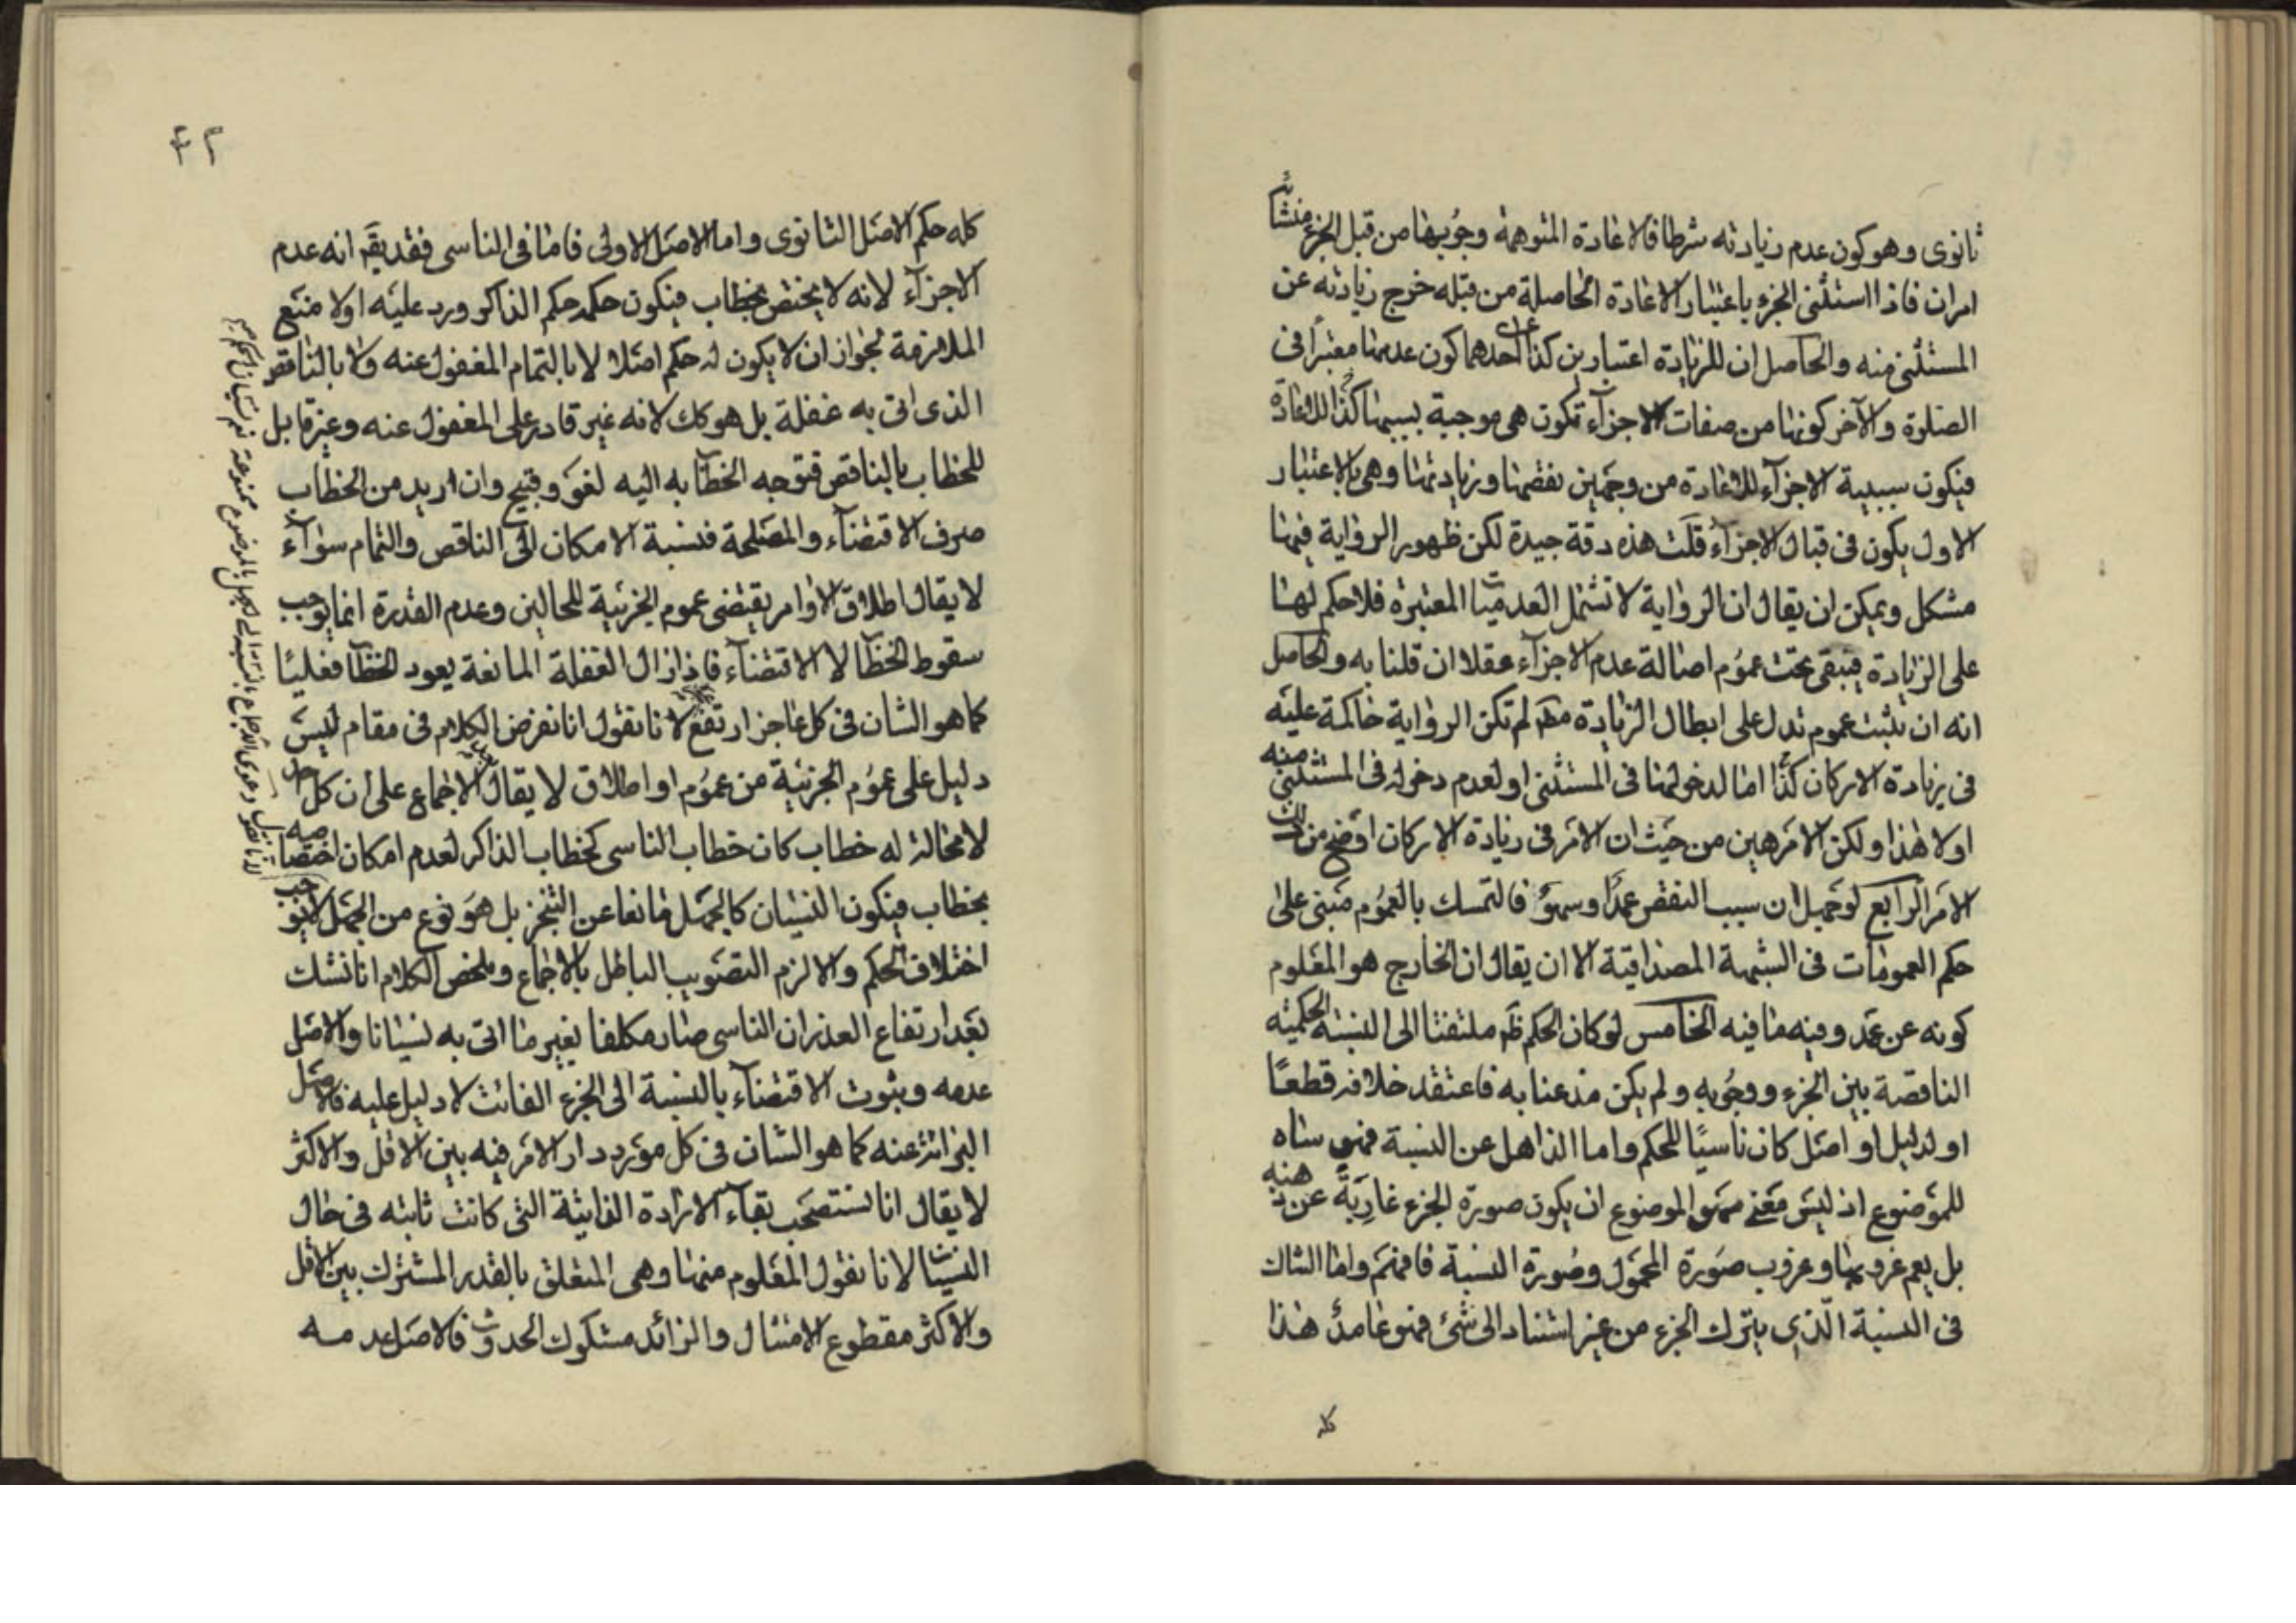 ثانوى وهو كون عدم زيادته شرطا فالاعادة المتوهمة وجوبها من قبل الجزء منشأ
امران فاذا استثنى الجزء باعتبار الاعادة الحاصلة من قبله خرج زيادته عن
المستثنى منه والحاصل ان للزيادة اعتبارين كذا احدهما كون عدمها معتبرا فى
الصلوة والآخر كونها من صفات الاجزآء تكون هى موجبة بسببها كذا للاعادة
فيكون سببية الاجزآء للاعادة من وجهين نقصها وزيادتها وهى بالاعتبار
الاول يكون فى قبال الاجزآء قلت هذه دقة جيدة لكن ظهور الرواية فيها
مشكل ويمكن ان يقال ان الرواية لا تشمل العدميات المعتبرة فلا حكم لها
على الزيادة فيبقى تحت عموم اصالة عدم الاجزآء عقلا ان قلنا به والحاصل
انه ان يثبت عموم تدل على ابطال الزيادة مهم لم تكن الرواية حاكمة عليه
فى زيادة الاركان كذا اما لدخولها فى المستثنى او لعدم دخوله فى المستثنى منه
اولا هذا ولكن الامر هين من حيث ان الامر فى زيادة الاركان اوضح من
الامر الرابع لو جهل ان سبب النقص عمدا وسهو فالتمسك بالعموم مبنى على
حكم العمومات فى الشبهة المصداقية الا ان يقال ان الخارج هو المعلوم
كونه عن عمد وفيه ما فيه الخامس لو كان الحكم ظم ملتفتا الى النسبة الحكمية
الناقصة بين الجزء ووجوبه ولم يكن مذعنا به فاعتقد خلافه قطعا
او لدليل او اصل كان ناسيا للحكم واما الذاهل عن النسبة فهو ساه
للموضوع اذ ليس معنى سهو الموضوع ان يكون صورة الجزء عارية عن ذهنه
بل يعم عزوبها وعزوب صورة المحمول وصورة النسبة فافهم واما الشاك
فى النسبة الذى يترك الجزء من غير استناد الى شئ فهو عامد هذا
كله
۴۲
كله حكم الاصل الثانوى واما الاصل الاولى فاما فى الناسى فقد يقم انه عدم
الاجزآء لانه لا يختص بخطاب فيكون حكمه حكم الذاكر ورد عليه اولا منع
الملازمة لجواز ان لا يكون له حكم اصلا لا بالتمام المغفول عنه ولا بالناقص
الذى اتى به غفلة بل هو كك لانه غير قادر على المغفول عنه وغير قابل
للخطاب بالناقص فتوجه الخطاب به اليه لغو وقبيح وان اريد من الخطاب
صرف الاقتضآء والمصلحة فنسبة الامكان الى الناقص والتمام سوآء
لا يقال اطلاق الاوامر يقتضى عموم الجزئية للحالين وعدم القدرة انما يوجب
سقوط الخطاب لا الاقتضآء فاذا زال الغفلة المانعة يعود الخطاب فعليا
كما هو الشان فى كل عاجز ارتفع لانا نقول انا نفرض الكلام فى مقام ليس
دليل على عموم الجزئية من عموم او اطلاق لا يقال الاجماع على ان كل
لا محالة له خطاب كان خطاب الناسى كخطاب الذاكر لعدم امكان اختصاصه
بخطاب فيكون النسيان كالجهل مانعا عن التنجز بل هو نوع من الجهل لا يوجب
اختلاف الحكم والا لزم التصويب الباطل بالاجماع وملخص الكلام انا نشك
بعد ارتفاع العذر ان الناسى صار مكلفا بغير ما اتى به نسيانا والاصل
عدمه وثبوت الاقتضآء بالنسبة الى الجزء الفائت لا دليل عليه فالاصل
البرائة عنه كما هو الشان فى كل مورد دار الامر فيه بين الاقل والاكثر
لا يقال انا نستصحب بقآء الارادة الفائتة التى كانت ثابته فى حال
النسيان لانا نقول المعلوم منها وهى المتعلق بالقدر المشترك بين الاقل
والاكثر مقطوع الامتثال والزائد مشكوك الحدوث فالاصل عدمه